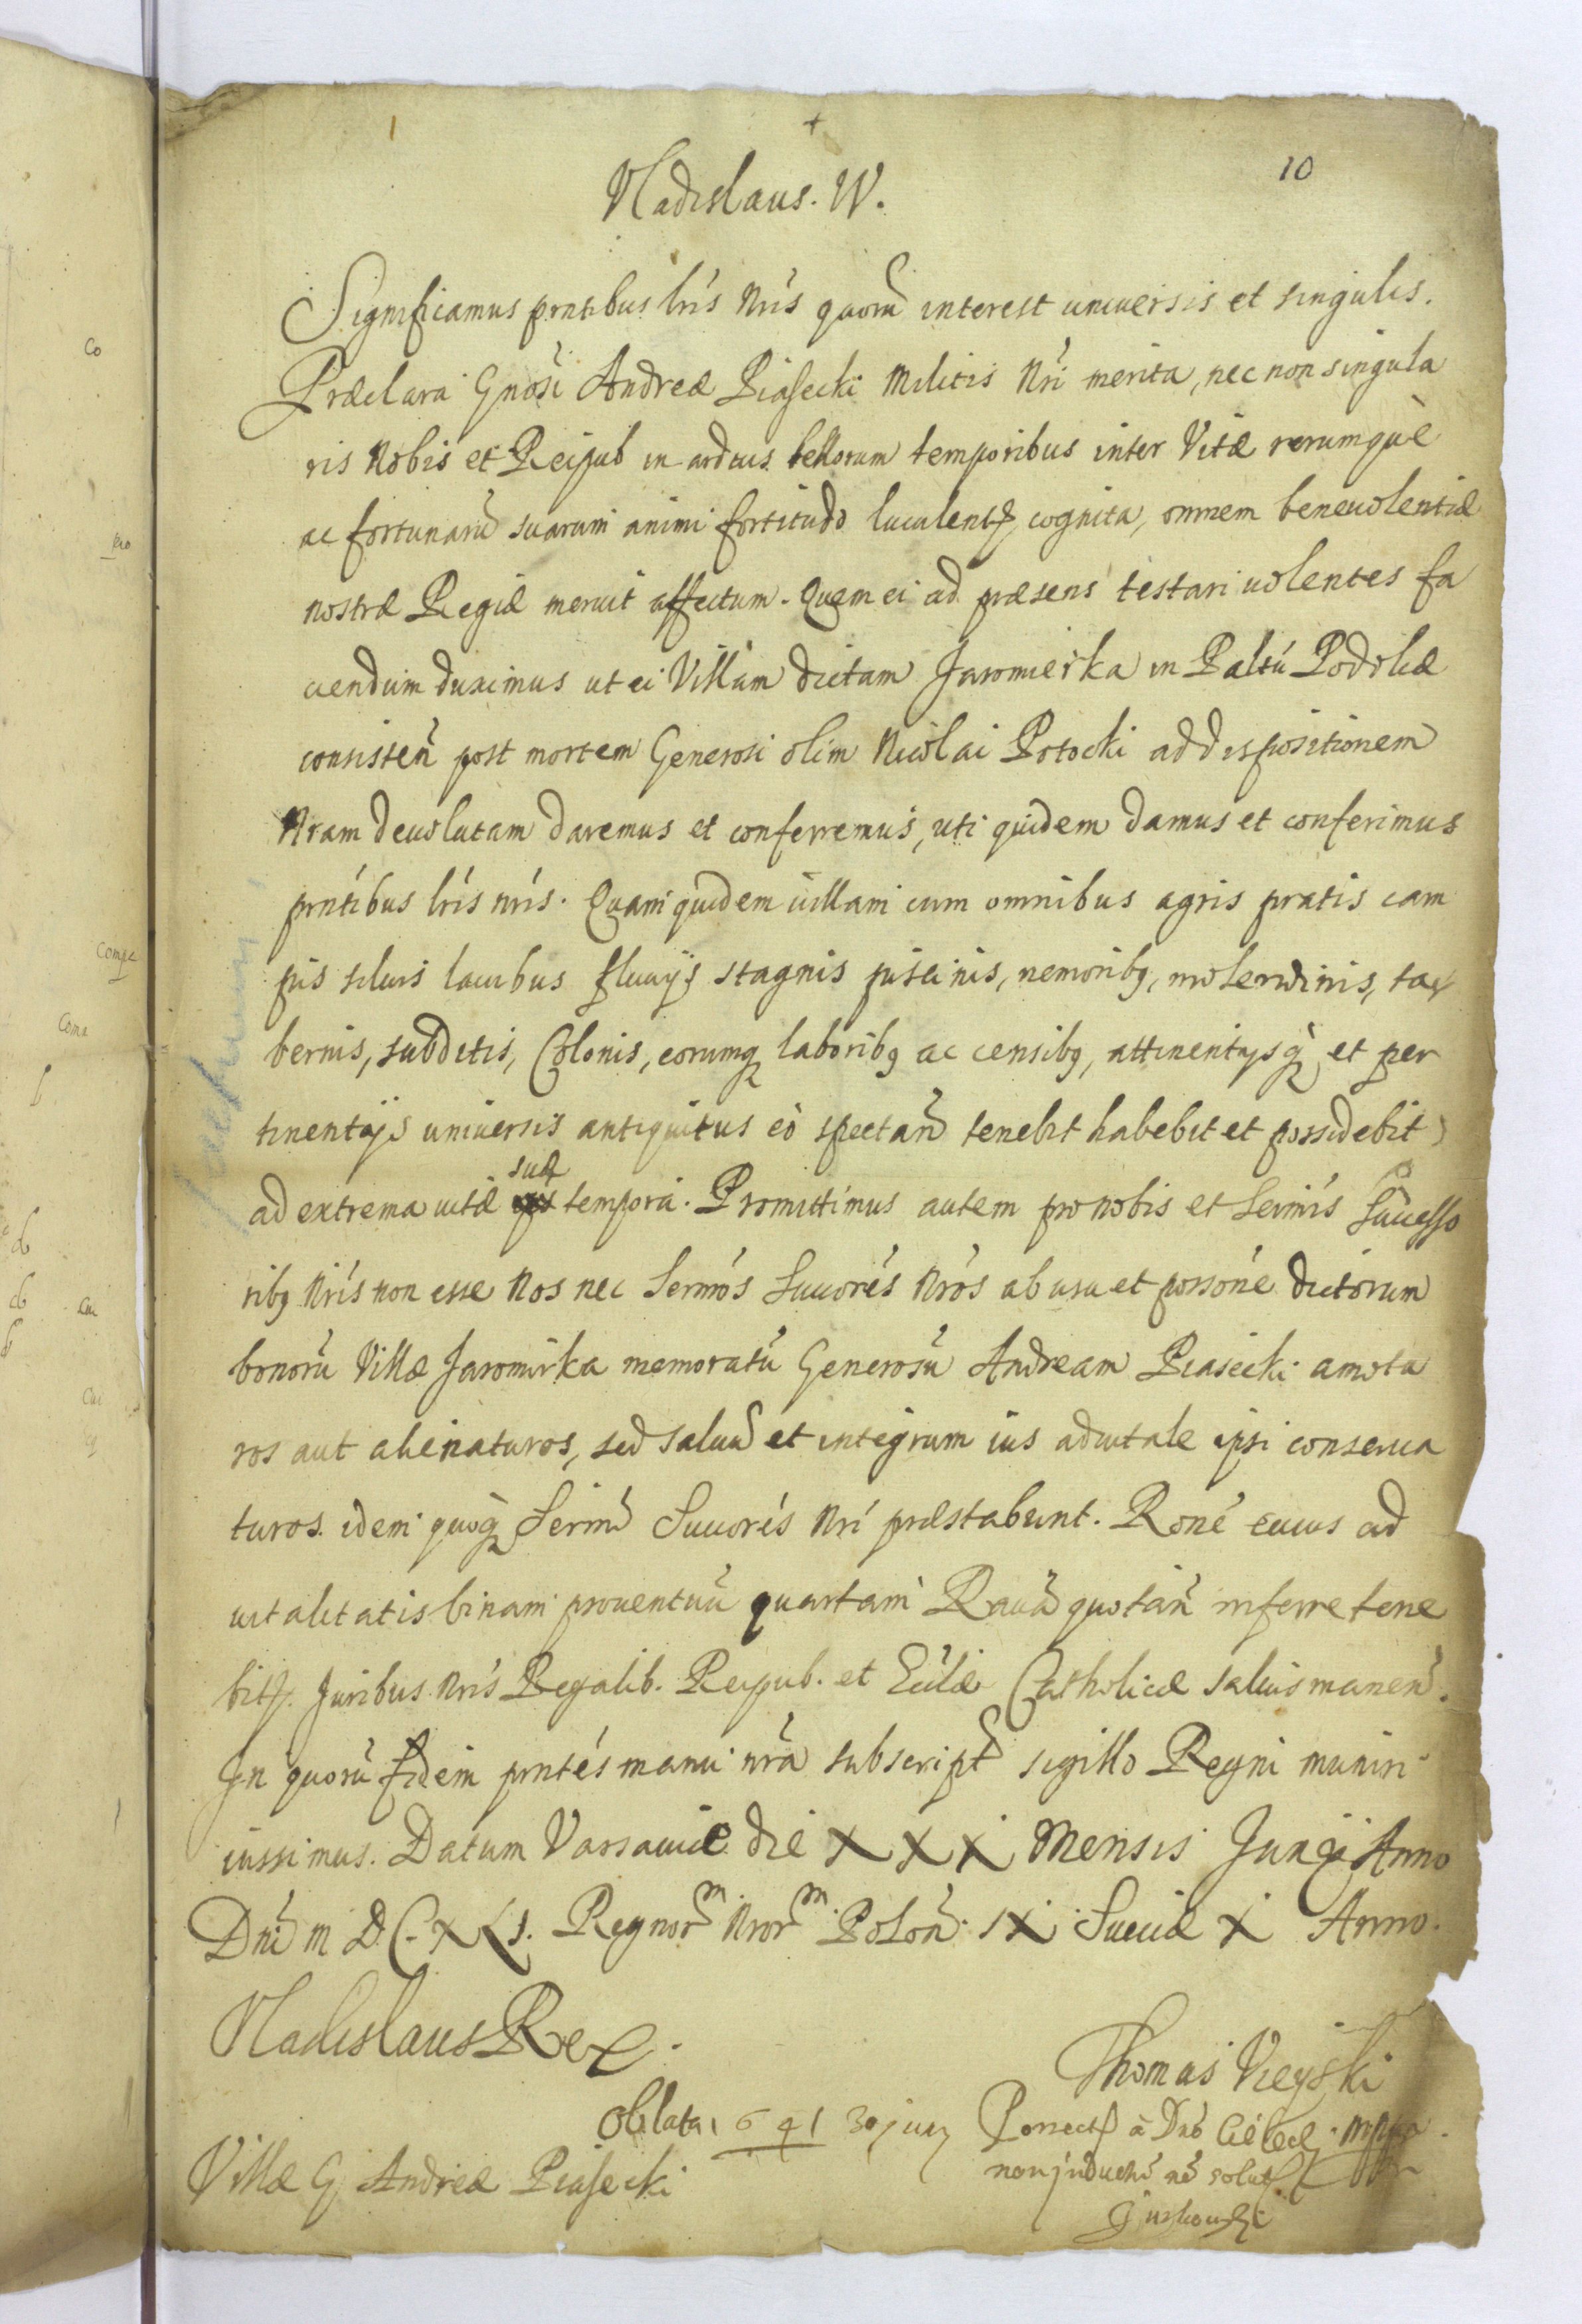 10
Vladislaus. IV.
Significamus prntibus lris nris quorũ interest universis et singulis.
Præclara Gnosi Andreæ Piasecki Militis Nri merita, nec non singula
ris Nobis et Reipub in arduis bellorum temporibus inter Vitæ rerumquè
ac fortunarũ suarum animi fortitudo luculent cognita, omnem benevolentiæ
nostræ Regiæ meruit affectum. Quem ei ad præsens testari volentes fa
ciendum duximus ut ei Villam dictam Jaromierka in Paltú Podoliæ
consisteñ post mortem Generosi olim Nicolai Potocki ad dispositionem
Nram devolutam daremus et conferremus, uti quidem damus et conferimus
prntibus lris nris. Quam quidem villam cum omnibus agris pratis cam
pis siluis lacubus fluuijs stagnis piscinis, nemoribꝫ, molendinis, ta
bernis, subditis, Colonis, eorumqꝫ laboribꝫ ac censibꝫ, attinentijsqꝫ et per
tinentijs universis antiquitus eò spectañ tenebit habebit et possidebit
ad extrema vitæ suæ tempora. Promittimus autem pro nobis et Sermis Successo
ribꝫ Nris non esse Nos nec Sermos Succores Nros ab usu et possone dictorum
bonorũ Villæ Jaromirka memoratũ Generosũ Andream Piasecki amota
ros aut alienaturos, sed saluũ et integrum ius aduitale ipsi conserua
turos. idem quoqꝫ Sermi Succores Nri præstabunt. Rone cuius ad
uitalitatis binam prouentuũ quartam Rauã quotañ inferre tene
bit. Juribus Nris Regalib. Reipub. et Eccliæ Catholicæ saluis maneñ.
In quorũ fidem prntes manu nra subscript sigillo Regni muniri
iussimus. Datum Varsauiæ die XXX Mensis Junij Anno
Dni M D C. XLI. Regnorm Nrorm Poloñ IX Sueciæ X Anno.
Vladislaus Rex.
Thomas Vieyski
Oblata 1641 30 juny
Porrect à Dno
Villæ G Andreæ Piasecki